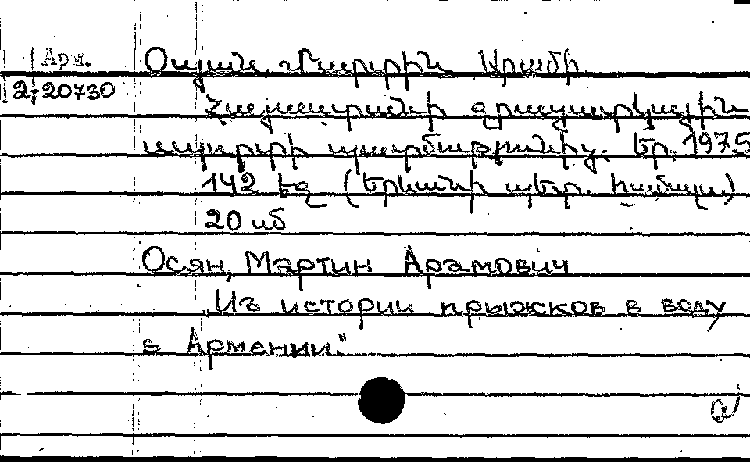 Арм.
2-20730
Օսյան, Մարտին Արամի
Հայաստանի ջրացատկային
սպորտի պատմությունից. Եր. 1975
142 էջ (Երևանի պետ. համալս.)
20 սմ
Осян, Мартин Арамович
"Из истории прыжков в воду
в Армении."